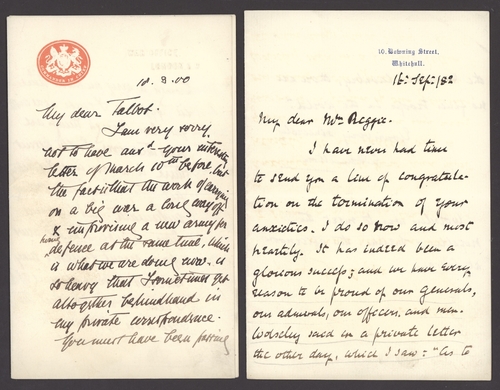 18.3.00
My dear Talbot.
I am very sorry
not to have ansd your interesting
letter of March 10th before but
the fact is that the work of carrying
on a big war a long way off
& improvising a new army for
home
defence at the same time, which
is what we are doing now. is
so heavy that I sometimes get
altogether behindhand in
my private correspondence.
You must have been passing
10, Downing Street,
Whitehall.
16 Sept/82
My dear Mrs
I have never had time
to send you a line of congratula-
tion on the termination of your
anxieties. I do so now and most
heartily. It has indeed been a
glorious success; and we have every
reason to be proud of our generals,
our admirals, our officers, and men.
Wolseley said in a private letter
the other day, which I saw: "As to